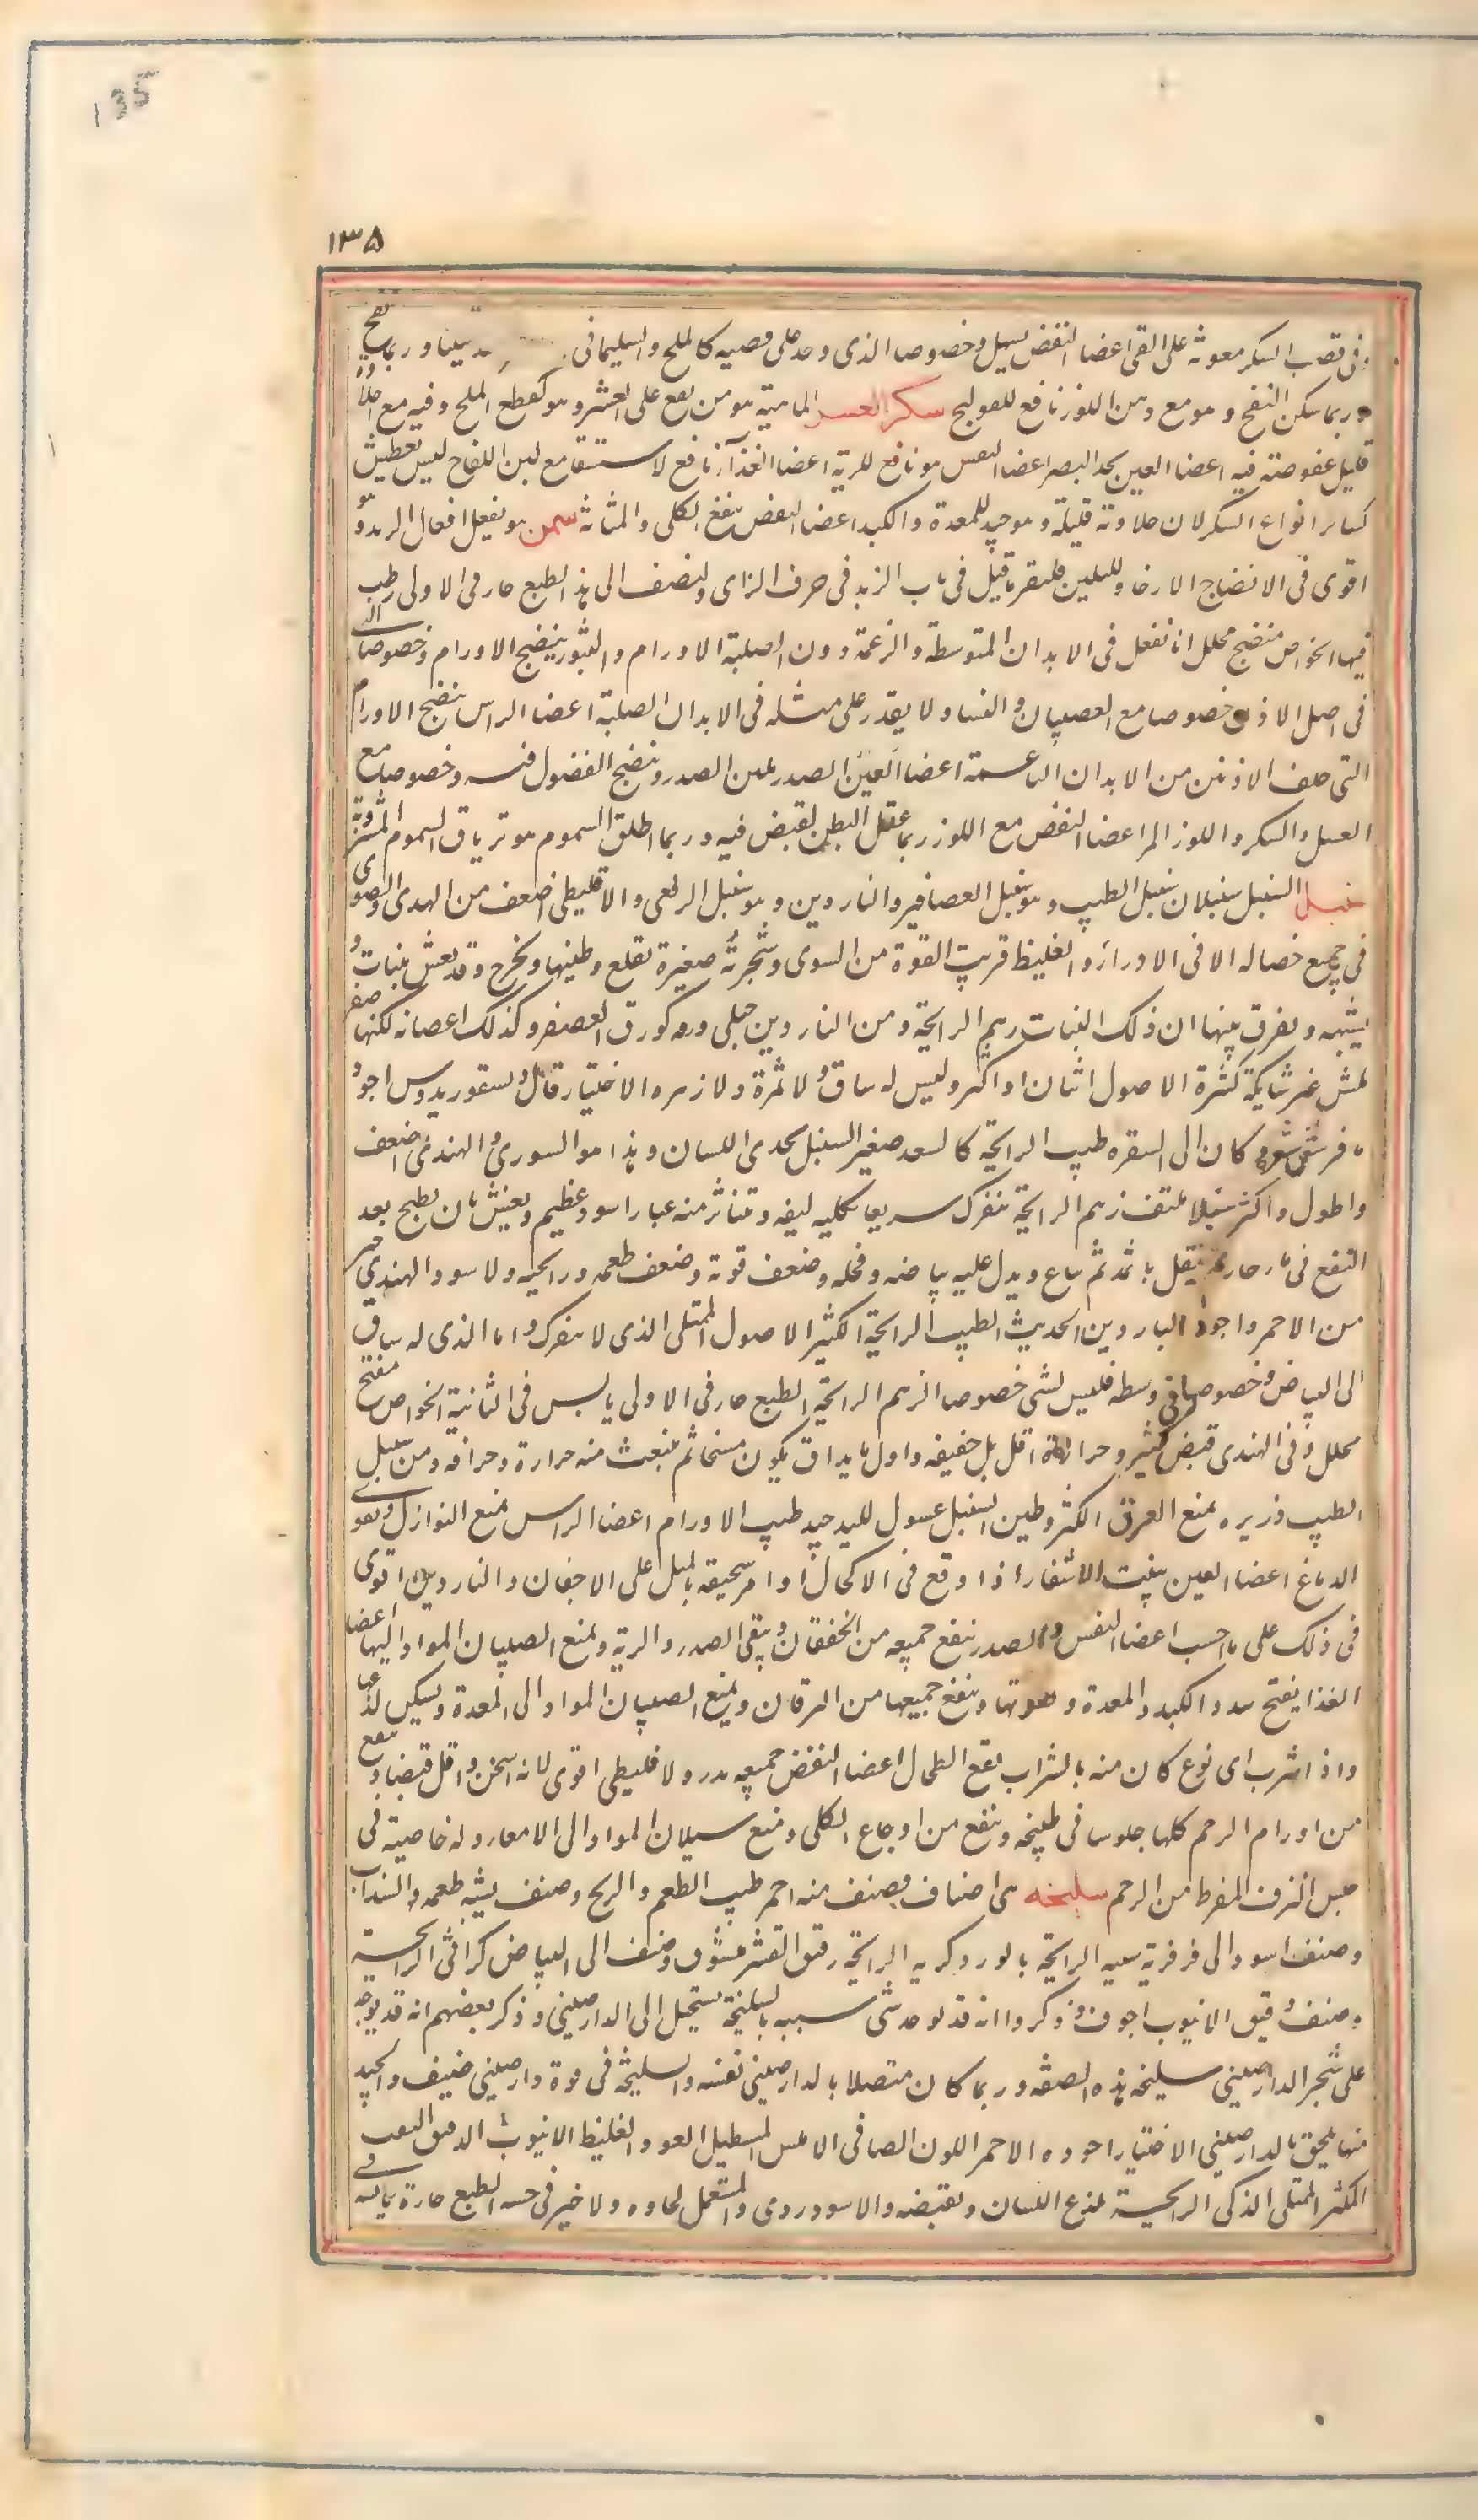 135
١٣٥
فى قصب السكر معونة على القى اعضا النفض يسهل وخصوصا الذى وجد على قصبه كالملح والسليمانى تليينا وربما نفخ
وربما سكن النفخ وهو مع دهن اللوز نافع للقولنج سكر العسر المامية هو من يقع على العشر وهو كقطع الملح وفيه مع حلاوة
قليل عفوصته فيه اعضا العين يحد البصر اعضا النفس هو نافع للرية اعضا الغذآ نافع لاستسقا مع لبن اللقاح ليس يعطش
كساير انواع السكر لان حلاوته قليلة وهو جيد للمعدة والكبد اعضا النفض ينفع الكلى والمثانة سمن هو يفعل افعال الزبد وهو
اقوى فى الانضاج الارخا والتليين فليقر ما قيل فى باب الزبد فى حرف الزاى وليضف الى هذا الطبع حار فى الاولى رطب
فيها الخواص منضج محلل انما تفعل فى الابدان المتوسطة والزعمة دون الصلبة الاورام والبثور ينضج الاورام وخصوصا التى
فى اصل الاذن خصوصا مع الصبيان والنسا ولا يقدر على مثله فى الابدان الصلبة اعضا الراس ينضج الاورام
التى خلف الاذنين من الابدان الناعمة اعضا العين الصدر يلين الصدر وينضج الفضول فيه وخصوصا مع
العسل والسكر واللوز المر اعضا النفض مع اللوز ربما عقل البطن لقبض فيه وربما اطلق السموم هو ترياق السموم المشروبة
سنبل السنبل سنبلان سنبل الطيب وهو سنبل العصافير والناردين وهو سنبل الرقعى والاقليطى اضعف من الهندى والصورى
فى جميع خصاله الا فى الادرار والغليظ قريب القوة من السورى وشجرته صغيرة تقلع وطينها وتخرج وقد يغش بنبات
يشبهه ويفرق بينها ان ذلك النبات زهم الرايحة ومن الناردين جبلى ورقه كورق العصفر وكذلك اعصانه لكنها صفر
لمس غير شايكة كثيرة الاصول اثنان او اكثر وليس له ساق ولا ثمرة ولا زهره الاختيار قال ديسقوريدوس اجود
ما فرشقى شعره كان الى الشقره طيب الرايحة كالسعد صغير السنبل يحذى اللسان وهذا هو السورى والهندى اضعف
واطول واكثر سنبلا ملتف زهم الرايحة يتفرك سريعا بكليه ليفه وتتناثر منه غبار اسود عظيم ويغش بان يطبخ بعد
النقع فى ماء حار ثم يثقل باثمد ثم يباع ويدل عليه بياضه وقحله وضعف قوته وضعف طعمه ورايحته والاسود الهندى خير
من الاحمر واجود الناردين الحديث الطيب الرايحة الكثير الاصول الممتلى الذى لا يتفرك واما الذى له ساق
الى البياض وخصوصا فى وسطه فليس بشى خصوصا الزهم الرايحة الطبع حار فى الاولى يابس فى الثانية الخواص مفتح
محلل وفى الهندى قبض كثير وحرارة اقل بل خفيفه واول ما يذاق يكون مسخا ثم ينبعث منه حرارة وحرافه ومن سنبل
الطيب ذريره يمنع العرق الكثير وطين السنبل غسول لليد جيد طيب الاورام اعضا الراس يمنع النوازل ويقوى
الدماغ اعضا العين ينبت الاشفار اذا وقع فى الاكحال او امر سحيقه بالميل على الاجفان والناردين اقوى
فى ذلك على ما احسب اعضا النفس والصدر ينفع جميعه من الخفقان وينقى الصدر والرية ويمنع الصبيان المواد اليها اعضا
الغذا يفتح سدد الكبد والمعدة وقوتها وينفع جميعها من اليرقان ويمنع الصبيان المواد الى المعدة ويسكن لذعها
واذا شرب اى نوع كان منه بالشراب نفع الطحال اعضا النفض جميعه مدر والاقليطى اقوى لانه اسخن واقل قبضا وينفع
من اورام الرحم كلها جلوسا فى طبيخه وينفع من اوجاع الكلى ويمنع سيلان المواد الى الامعا وله خاصية فى
حبس النزف المفرط من الرحم سليخه هى اصناف فصنف منه احمر طيب الطعم والريح وصنف يشبه طعمه السنداب
وصنف اسود الى فرفرية شبيه الرايحة بالورد وكريه الرايحة رقيق القشر مشقوق وصنف الى البياض كراثى الرايحة
وصنف دقيق الانبوب اجوف وذكروا انه قد يوجد شى شبيه بالسليخة يستحيل الى الدارصينى وذكر بعضهم انه قد يوجد
على شجر الدارصينى سليخه بهذه الصفه وربما كان متصلا بالدارصينى نفسه والسليخة فى قوة دارصينى ضعيف والجيد
منها يلحق بالدارصينى الاختيار اجوده الاحمر اللون الصافى الاملس المسطيل العود الغليظ الانبوب الدقيق الثقب
المكثر الممتلى الذكى الرايحة يلذع اللسان ويقبضه والاسود ردى والمستعمل لحاوه ولا خير فى خشبه الطبع حارة يابسه فى